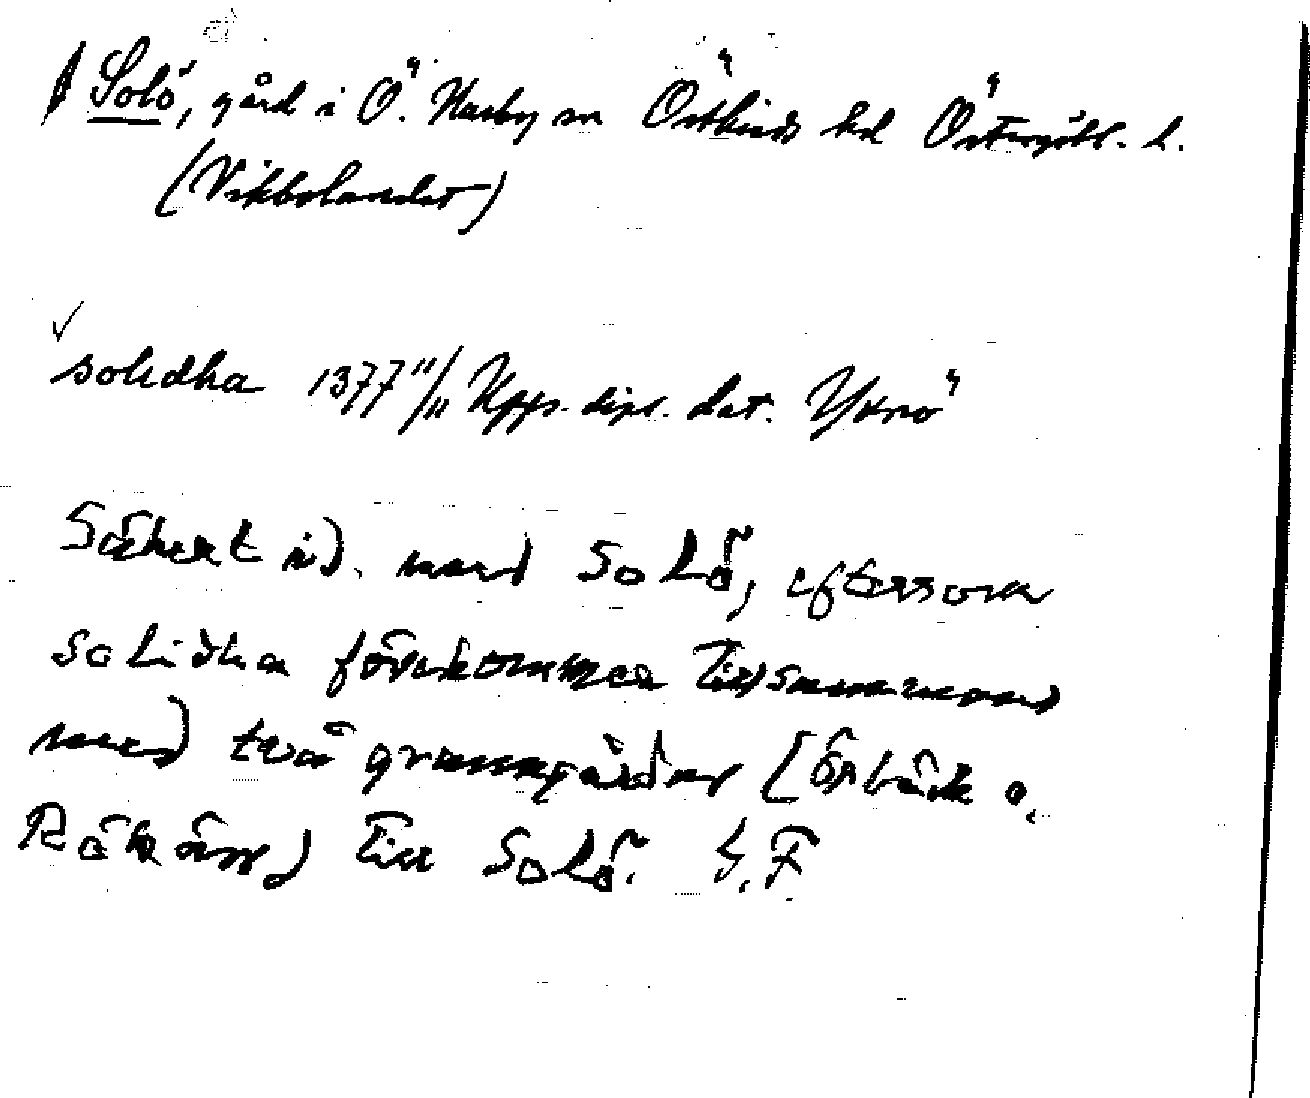 Solö, gård i Ö. Husby sn Östkinds hd Östergötl. l.
(Vikbolandet)
solidha 1377 11/11 Upps. dipl. dat. Yxnö
Säkert id. med Solö, eftersom
solidha förekommer tillsammans
med två granngårdar (Örbäck o.
till Solö. S.F